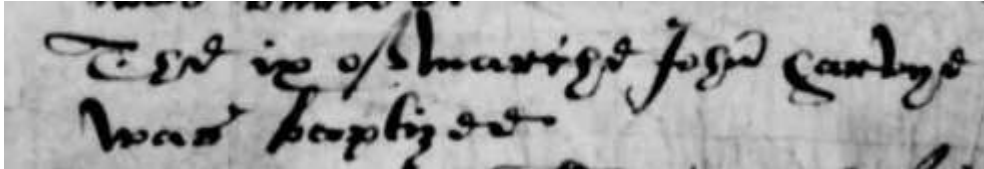 The ix of marche John Carvye
was baptized